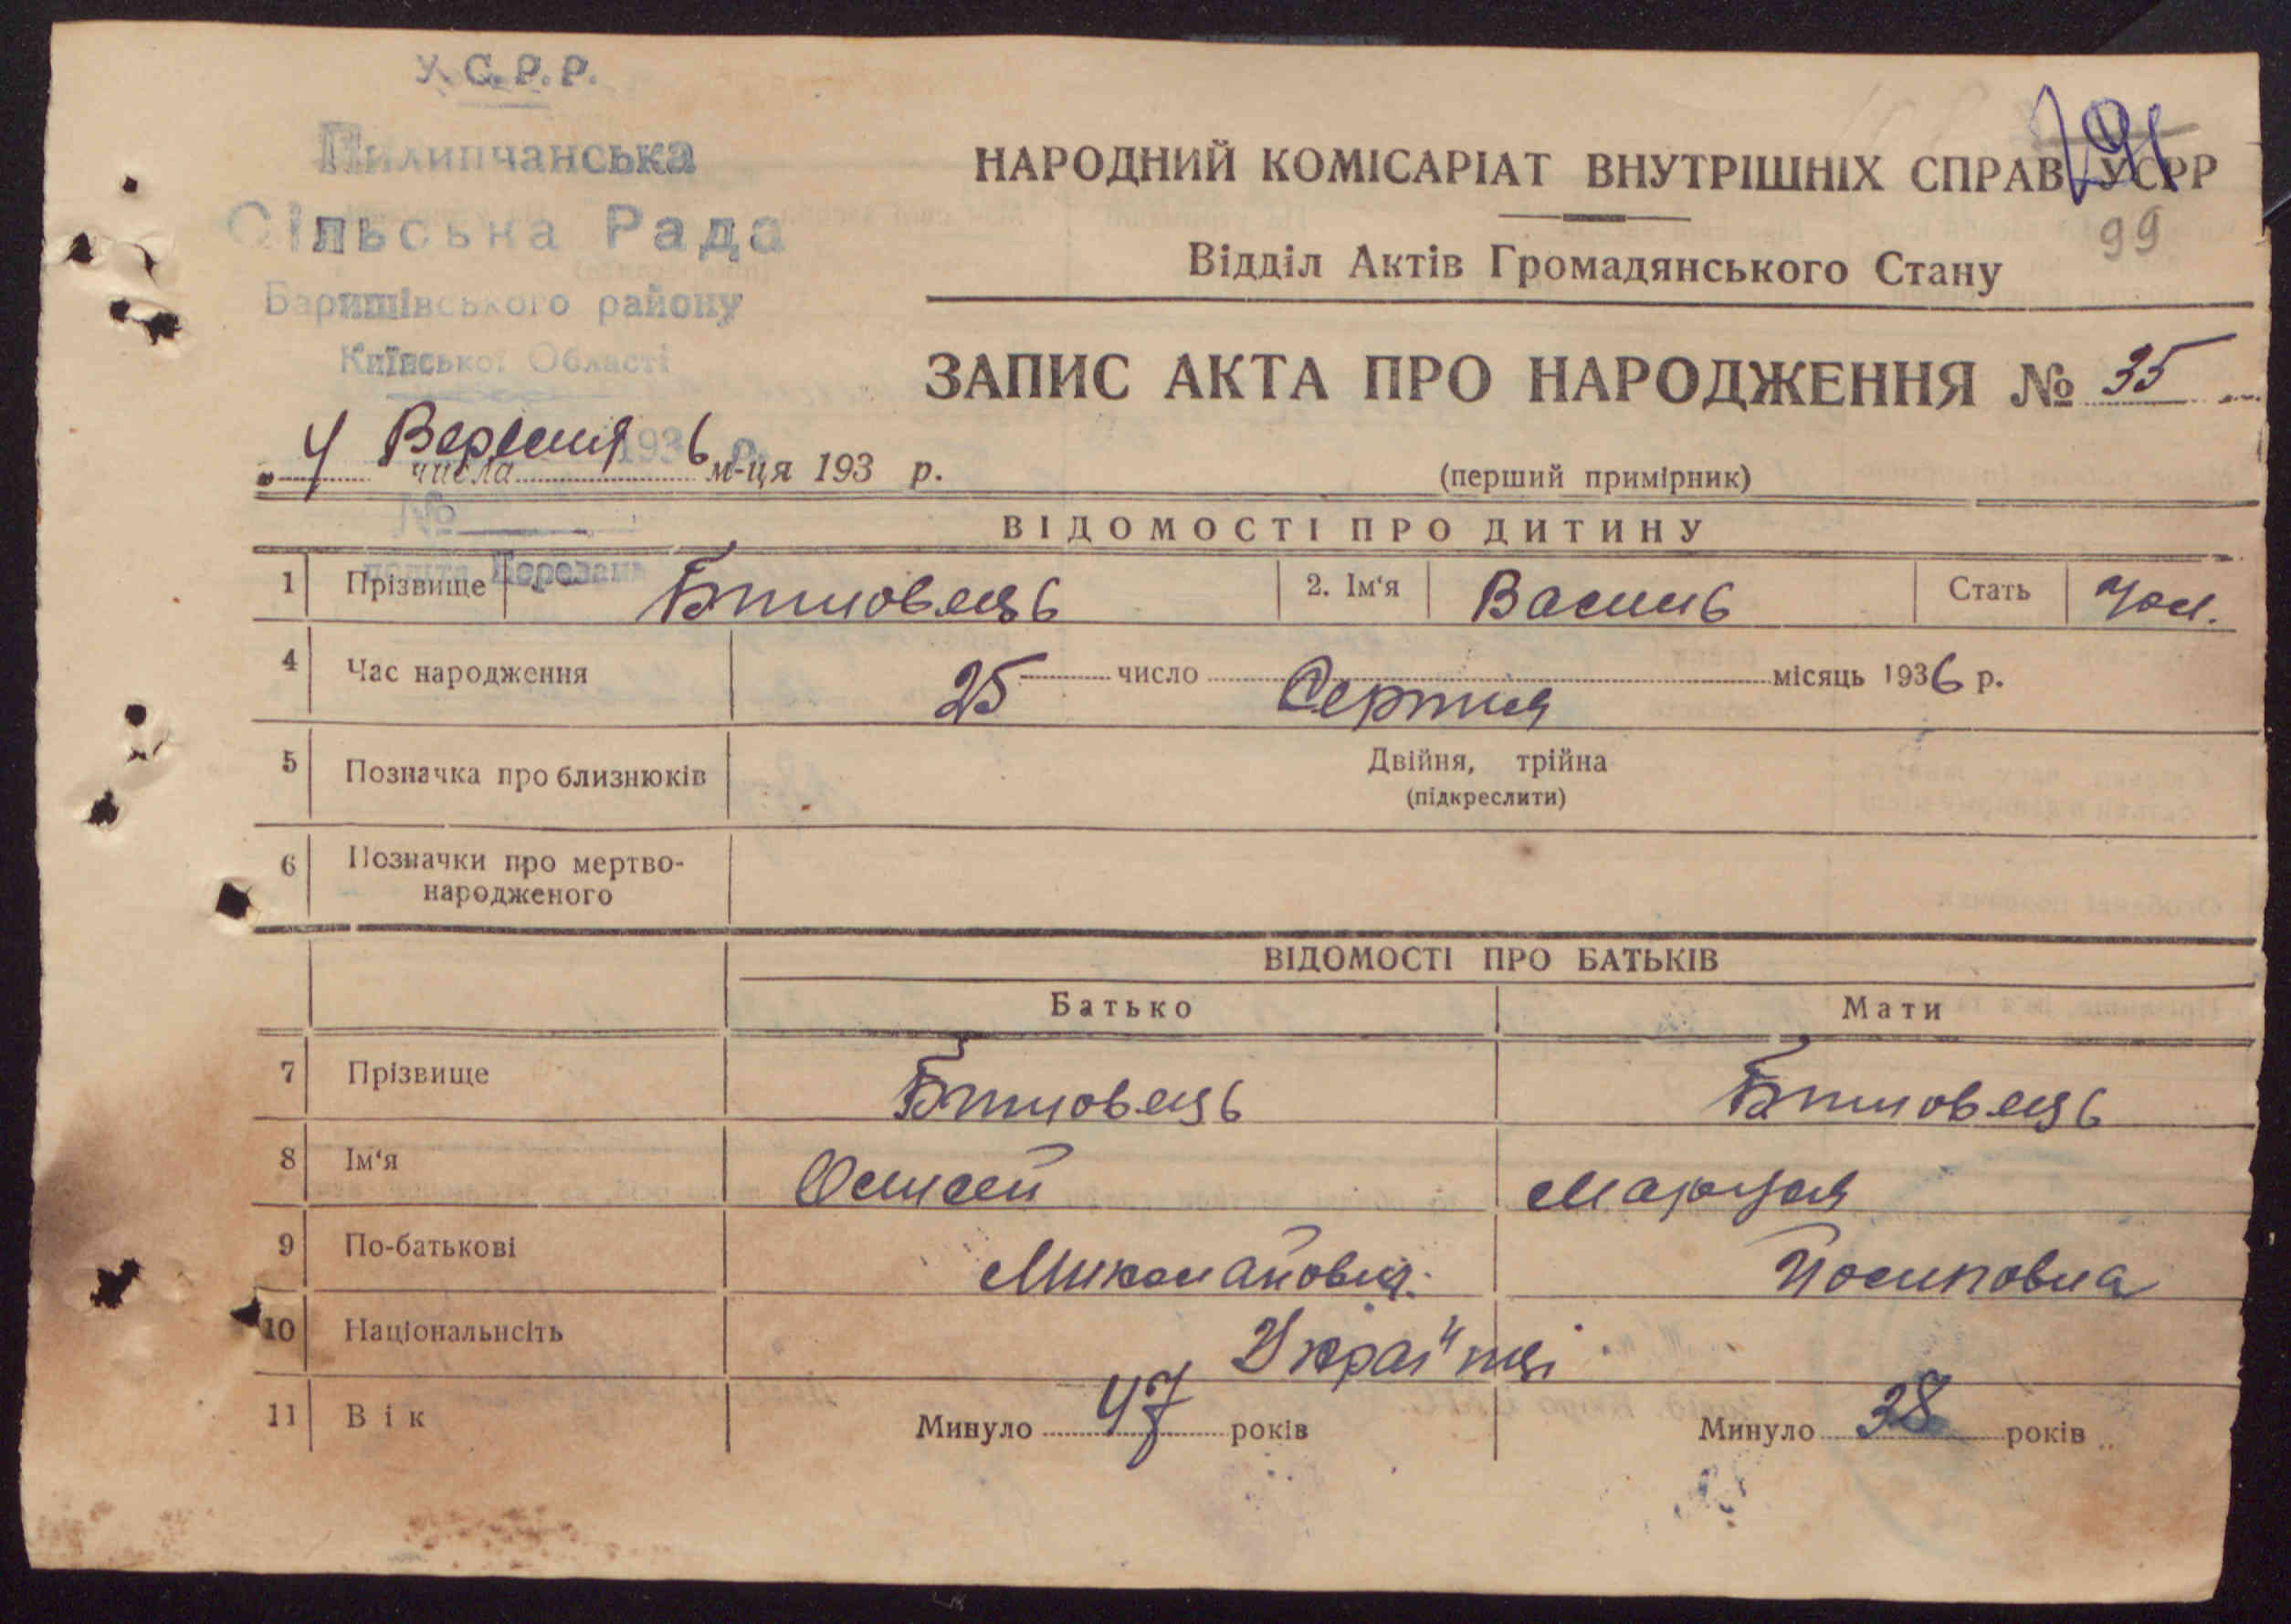 У.С.Р.Р.
Пилипчанська
Сільська Рада
Баришівського району
Київської Області
193 р.
№
пошта Березань
191
99
НАРОДНИЙ КОМІСАРІАТ ВНУТРІШНІХ СПРАВ УСРР
Відділ Актів Громадянського Стану
ЗАПИС АКТА ПРО НАРОДЖЕННЯ № 35
„ 4 числа Вересня 6 м-ця 193 р.
(перший примірник)
ВІДОМОСТІ ПРО ДИТИНУ
1 Прізвище Битовець 2. Ім'я Василь Стать Чол.
4 Час народження 25 число Серпня місяць 1936 р.
5 Позначка про близнюків Двійня, трійна
(підкреслити)
6 Позначки про мертво-
народженого
ВІДОМОСТІ ПРО БАТЬКІВ
Батько Мати
7 Прізвище
8 Ім'я
9 По-батькові Миколайович. Йосиповна
10 Національнсіть Українці
11 Вік Минуло 47 років Минуло 38 років